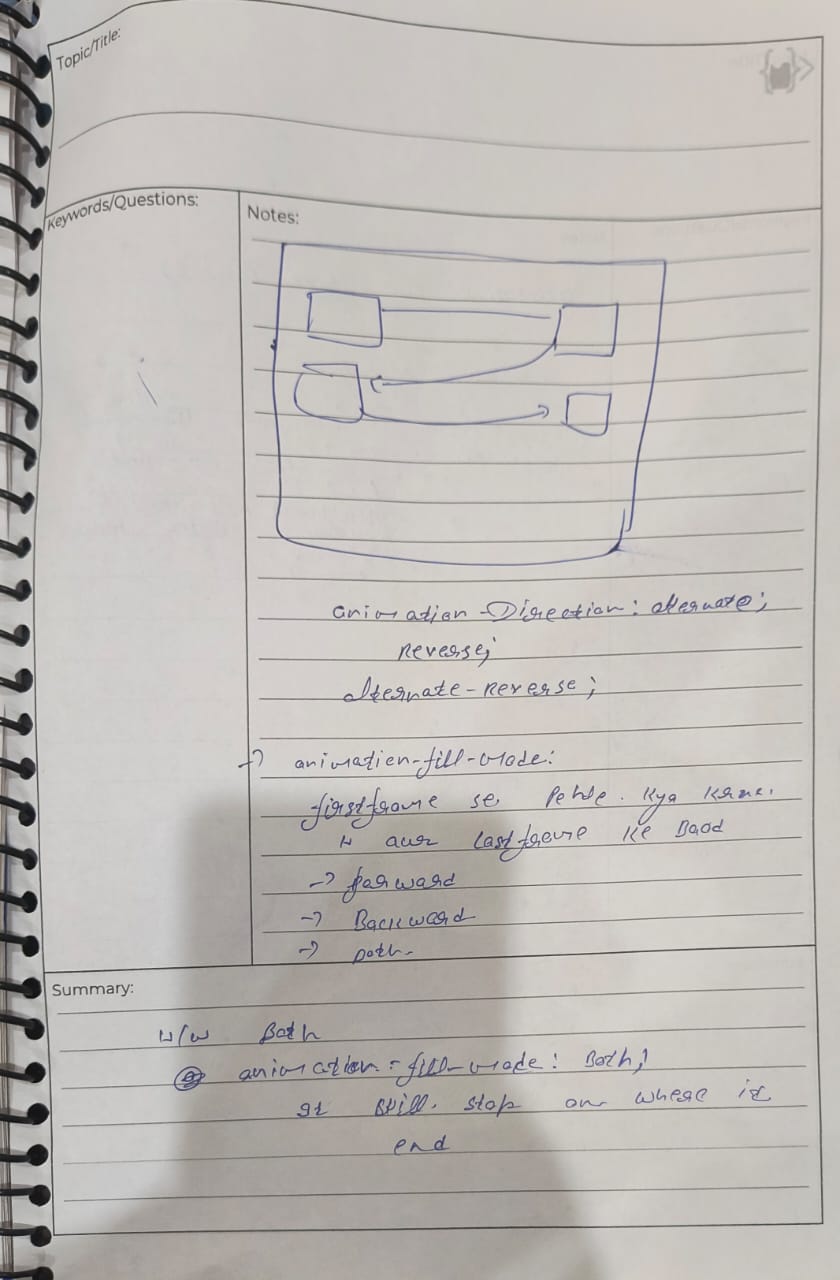 Topic/Title:
Keywords/Questions:
Notes:
animation-Direction: alternate;
reverse;
alternate-reverse;
→ animation-fill-mode:
firstframe se Pehle. Kya Krna.
aur lastframe ke Baad
→ forward
→ Backward
→ both.
Summary:
H/W Both
animation-fill-mode: Both;
stop on where it
end